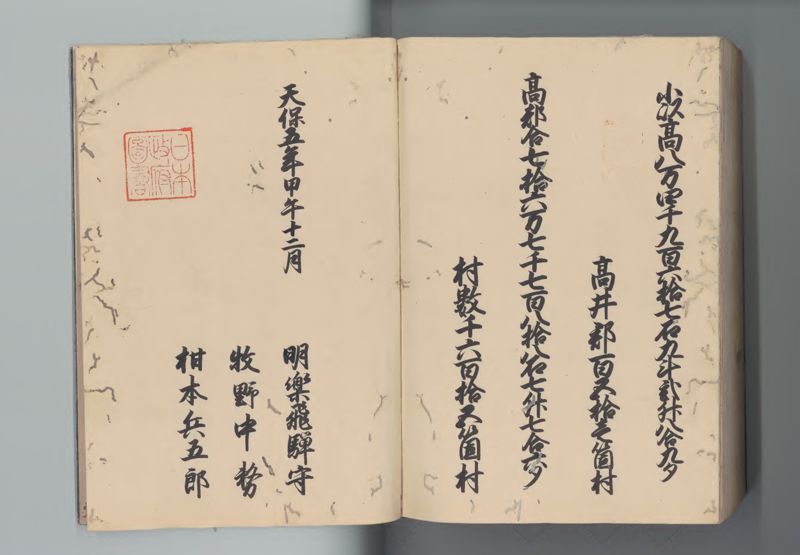 小以高八万四千九百六拾七石九斗弐升八合九夕
高井郡百五拾壱箇村
高都合七拾六万七千七百八拾八石七升七合六夕
村數千六百拾五箇村
天保五年甲午十二月
明樂飛騨守
牧野中務
柑本兵五郎
日本
政府
圖書